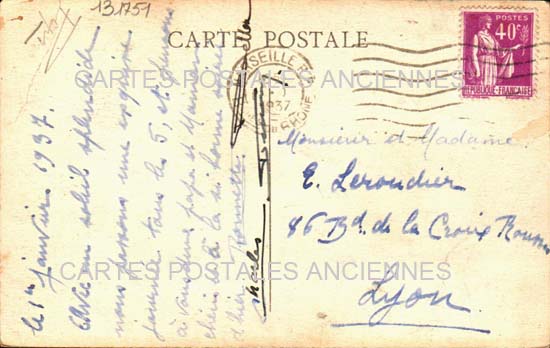 131751
CARTE POSTALE
MARSEILLE
1937
RHONE
POSTES
40c
REPUBLIQUE FRANÇAISE
CARTES POSTALES ANCIENNES
le 1er janvier 1937.
Avec un soleil splendide
nous passons une
journée tous les 5, et
à vous deux papa et Maman
chéris et à la si bonne
d'hier
Charles
Monsieur et Madame
E. Leroudier
86 Bd. de la Croix Rousse
CARTES POSTALES ANCIENNES
Lyon